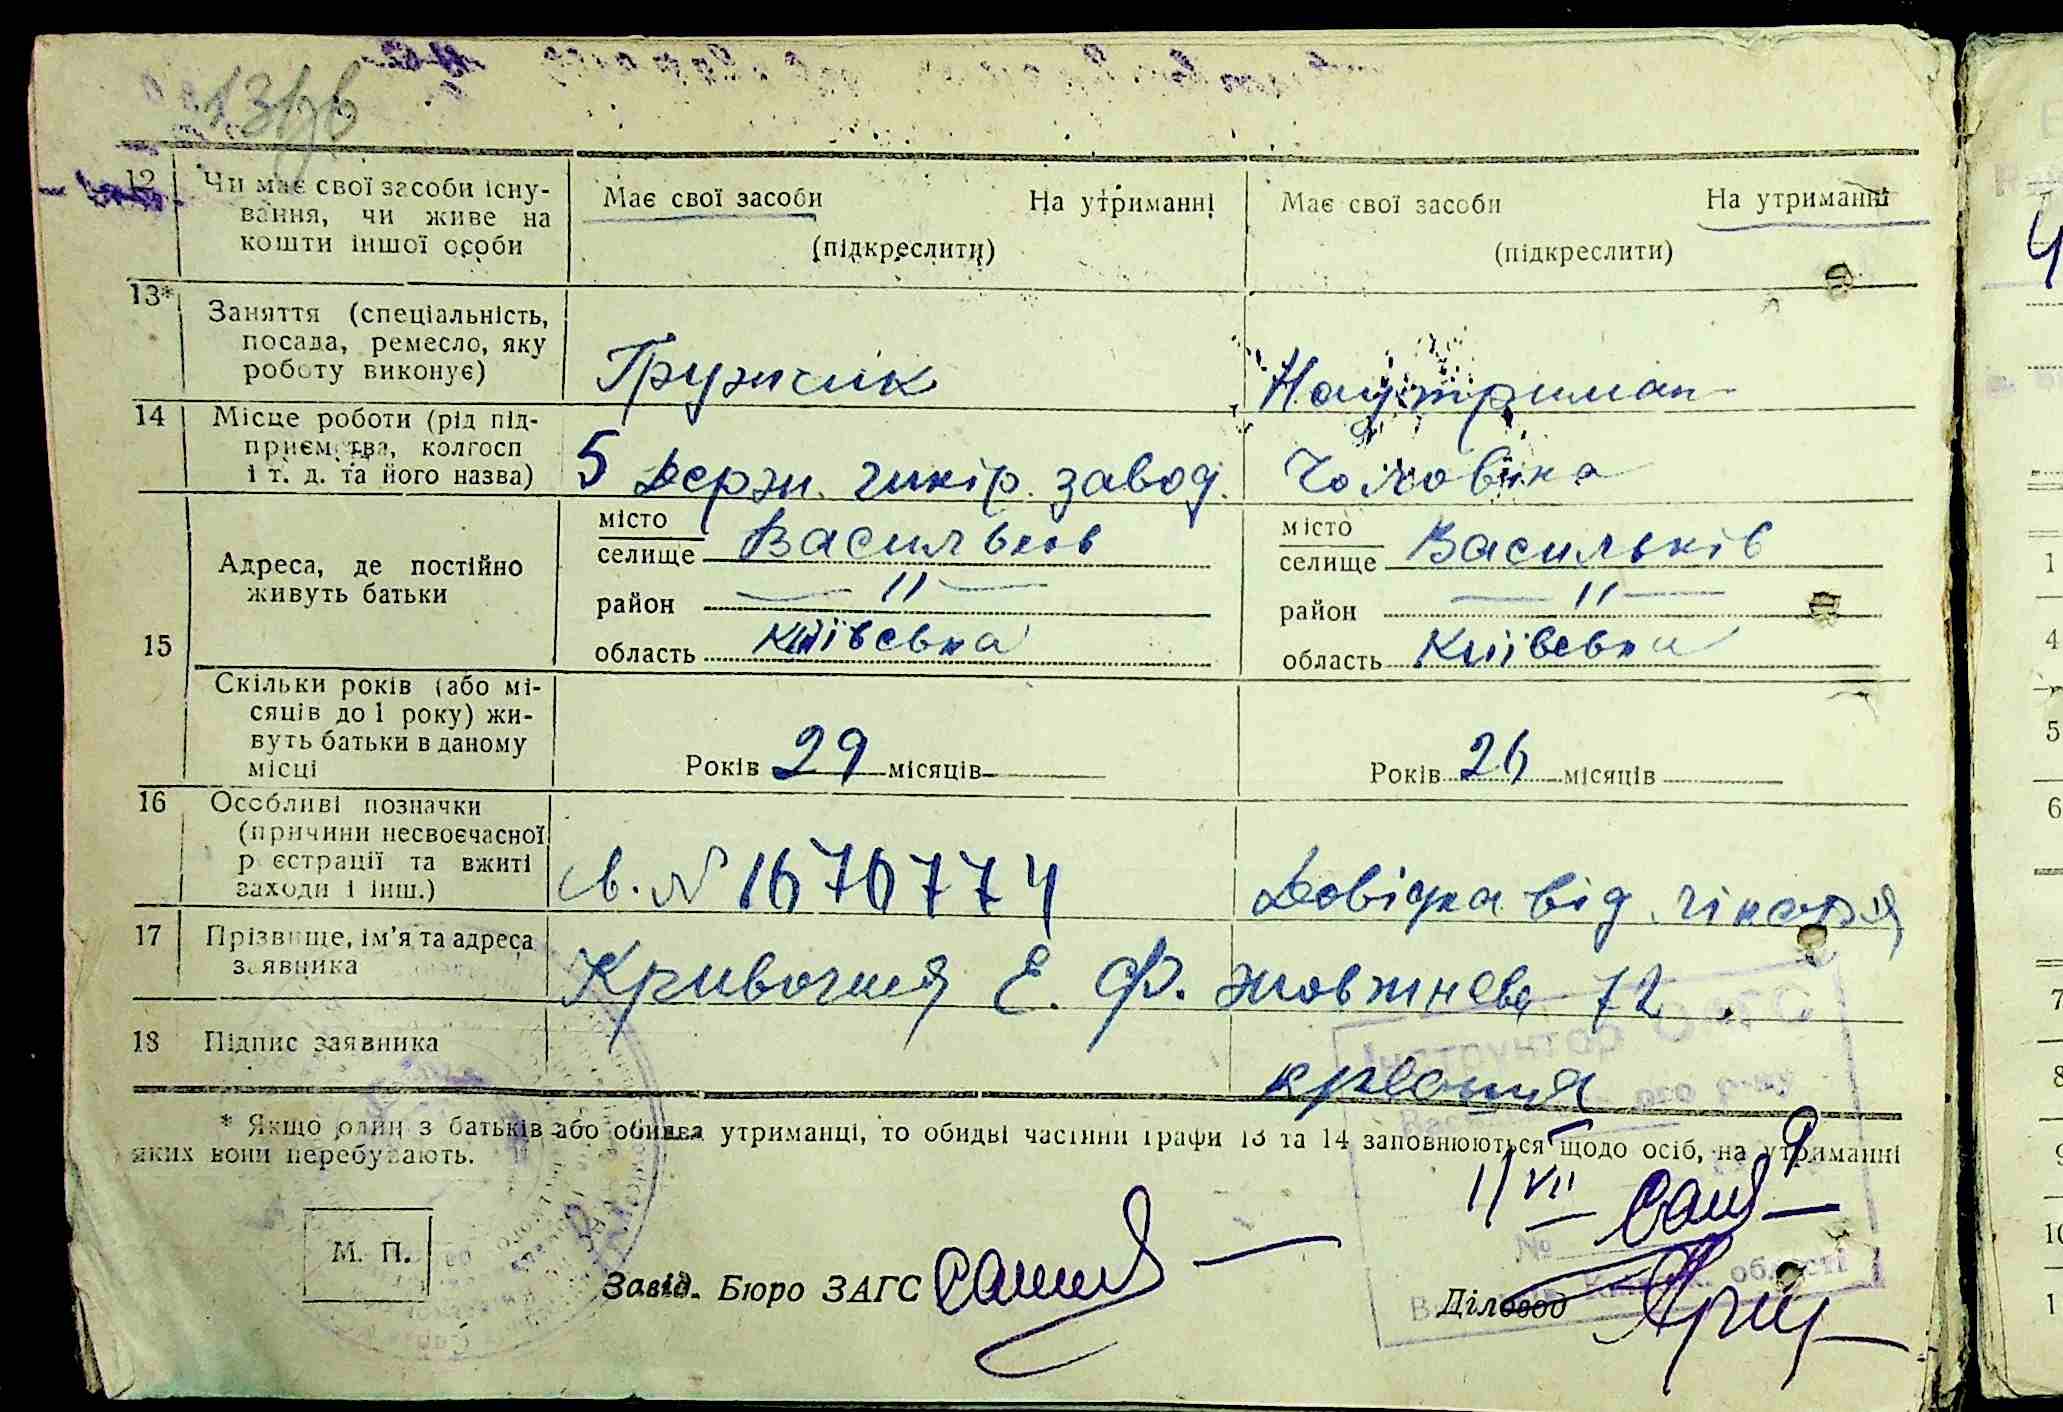 12 Чи має свої засоби існу-
вання, чи живе на
кошти іншої особи
Має свої засоби На утриманні
(підкреслити)
Має свої засоби На утриманні
(підкреслити)
13* Заняття (спеціальність,
посада, ремесло, яку
роботу виконує)
Грузчик
На утриман
14 Місце роботи (рід під-
приємства, колгосп
і т. д. та його назва)
5 Держ. шкір. завод.
Чоловіка
15 Адреса, де постійно
живуть батьки
місто
селище Васильков
район — 11 —
область Київська
місто
селище Васильків
район — 11 —
область Київська
Скільки років (або мі-
сяців до 1 року) жи-
вуть батьки в даному
місці
Років 29 місяців
Років 26 місяців
16 Особливі позначки
(причини несвоєчасної
реєстрації та вжиті
заходи і інш.)
св. № 1676774
Довідка від лікаря
17 Прізвище, ім'я та адреса
заявника
Кривошия Е. Ф. Жовтнева 72
18 Підпис заявника
* Якщо один з батьків або обидва утриманці, то обидві частини графи 13 та 14 заповнюються щодо осіб, на утриманні
яких вони перебувають.
11/VII
М. П.
Завід. Бюро ЗАГС
Діловод
Інструктор ОАГС
області
1
4
5
6
7
8
9